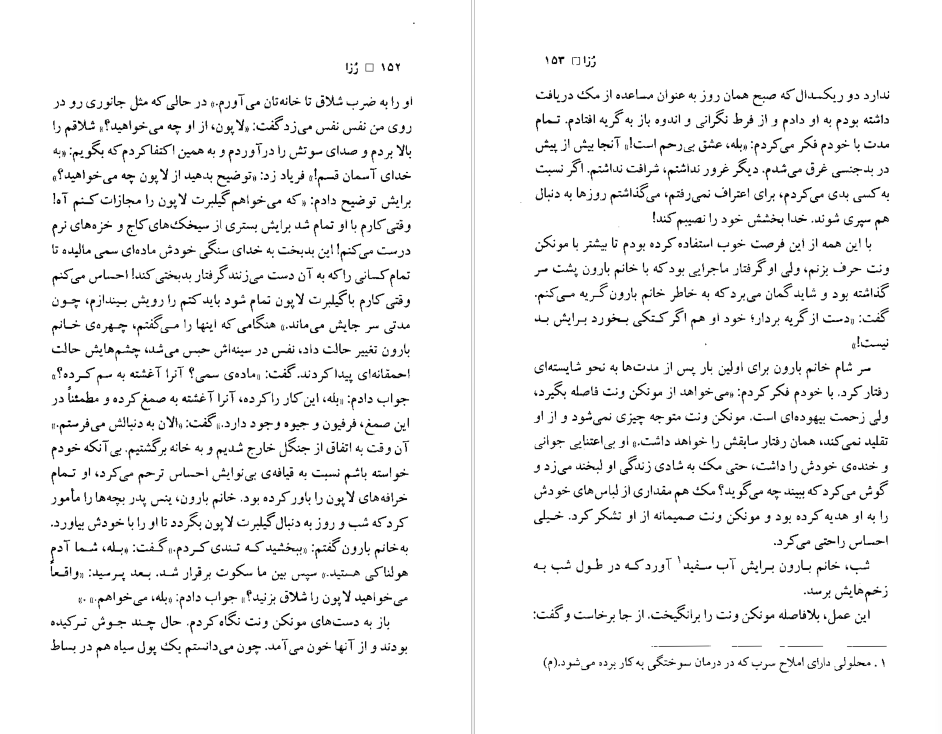 ۱۵۲ □ رُزا
او را به ضرب شلاق تا خانه‌تان می‌آورم.» در حالی‌که مثل جانوری رو در
روی من نفس نفس می‌زد گفت: «لاپون، از او چه می‌خواهید؟» شلاقم را
بالا بردم و صدای سوتش را درآوردم و به همین اکتفا کردم که بگویم: «به
خدای آسمان قسم!» فریاد زد: «توضیح بدهید از لاپون چه می‌خواهید؟»
برایش توضیح دادم: «که می‌خواهم گیلبرت لاپون را مجازات کنم آه!
وقتی کارم با او تمام شد برایش بستری از سیخک‌های کاج و خزه‌های نرم
درست می‌کنم! این بدبخت به خدای سنگی خودش ماده‌ای سمی مالیده تا
تمام کسانی را که به آن دست می‌زنند گرفتار بدبختی کند! احساس می‌کنم
وقتی کارم با گیلبرت لاپون تمام شود باید کتم را رویش بیندازم، چون
مدتی سر جایش می‌ماند.» هنگامی که اینها را می‌گفتم، چهره‌ی خانم
بارون تغییر حالت داد، نفس در سینه‌اش حبس می‌شد، چشم‌هایش حالت
احمقانه‌ای پیدا کردند. گفت: «ماده‌ی سمی؟ آنرا آغشته به سم کرده؟»
جواب دادم: «بله، این کار را کرده، آنرا آغشته به صمغ کرده و مطمئناً در
این صمغ، فرفیون و جیوه وجود دارد.» گفت: «الان به دنبالش می‌فرستم.»
آن وقت به اتفاق از جنگل خارج شدیم و به خانه برگشتیم. بی‌آنکه خودم
خواسته باشم نسبت به قیافه‌ی بی‌نوایش احساس ترحم می‌کرد، او تمام
خرافه‌های لاپون را باور کرده بود. خانم بارون، ینس پدر بچه‌ها را مأمور
کرد که شب و روز به دنبال گیلبرت لاپون بگردد تا او را با خودش بیاورد.
به خانم بارون گفتم: «ببخشید که تندی کردم.» گفت: «بله، شما آدم
هولناکی هستید.» سپس بین ما سکوت برقرار شد. بعد پرسید: «واقعاً
می‌خواهید لاپون را شلاق بزنید؟» جواب دادم: «بله، می‌خواهم.» .»
باز به دست‌های مونکن ونت نگاه کردم. حال چند جوش ترکیده
بودند و از آنها خون می‌آمد. چون می‌دانستم یک پول سیاه هم در بساط
رُزا □ ۱۵۳
ندارد دو ریکسدال که صبح همان روز به عنوان مساعده از مک دریافت
داشته بودم به او دادم و از فرط نگرانی و اندوه باز به گریه افتادم. تمام
مدت با خودم فکر می‌کردم: «بله، عشق بی‌رحم است!» آنجا بیش از پیش
در بدجنسی غرق می‌شدم. دیگر غرور نداشتم، شرافت نداشتم. اگر نسبت
به کسی بدی می‌کردم، برای اعتراف نمی‌رفتم، می‌گذاشتم روزها به دنبال
هم سپری شوند. خدا بخشش خود را نصیبم کند!
با این همه از این فرصت خوب استفاده کرده بودم تا بیشتر با مونکن
ونت حرف بزنم، ولی او گرفتار ماجرایی بود که با خانم بارون پشت سر
گذاشته بود و شاید گمان می‌برد که به خاطر خانم بارون گریه می‌کنم.
گفت: «دست از گریه بردار؛ خود او هم اگر کتکی بخورد برایش بد
نیست!»
سر شام خانم بارون برای اولین بار پس از مدت‌ها به نحو شایسته‌ای
رفتار کرد. با خودم فکر کردم: «می‌خواهد از مونکن ونت فاصله بگیرد،
ولی زحمت بیهوده‌ای است. مونکن ونت متوجه چیزی نمی‌شود و از او
تقلید نمی‌کند، همان رفتار سابقش را خواهد داشت.» او بی‌اعتنایی جوانی
و خنده‌ی خودش را داشت، حتی مک به شادی زندگی او لبخند می‌زد و
گوش می‌کرد که ببیند چه می‌گوید؟ مک هم مقداری از لباس‌های خودش
را به او هدیه کرده بود و مونکن ونت صمیمانه از او تشکر کرد. خیلی
احساس راحتی می‌کرد.
شب، خانم بارون برایش آب سفید۱ آورد که در طول شب به
زخم‌هایش برسد.
این عمل، بلافاصله مونکن ونت را برانگیخت. از جا برخاست و گفت:
۱. محلولی دارای املاح سرب که در درمان سوختگی به کار برده می‌شود.(م)